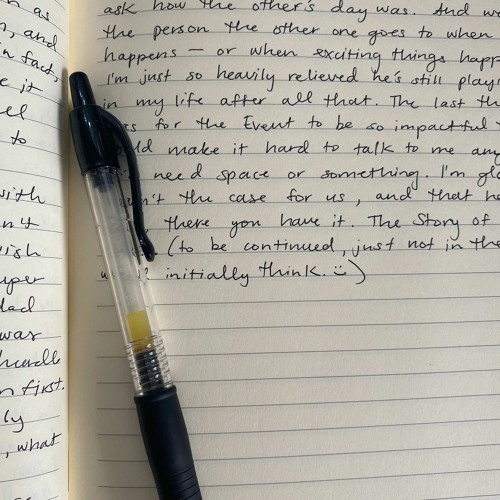 as
, and
in fact,
e it
el
to
with
n't
ish
uper
dad
was
hurdle
n first.
ly
, what
ask how the other's day was. And w
the person the other one goes to when
happens — or when exciting things happ
I'm just so heavily relieved he's still plays
in my life after all that. The last th
for the Event to be so impactful
ld make it hard to talk to me any
need space or something. I'm gl
n't the case for us, and that he
there you have it. The Story of
(to be continued, just not in the
initially think. :))